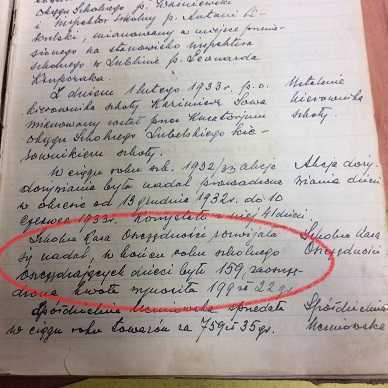 Okręgu Szkolnego p. Wasniewski
i Inspektor Szkolny p. Antoni
mianowany w miejsce prze-
sionego na stanowisko inspektora
szkolnego w Lublinie p. Leonarda
Kruporaka.
Z dniem 1 lutego 1933 r. p. o. Ustalenie
kierownika szkoły Kazimierz Sowa kierownika
mianowany został przez Kuratorjum szkoły.
Okręgu Szkolnego Lubelskiego kie-
rownikiem szkoły.
W ciągu roku szk. 1932/33 akcja Akcja doży-
dożywiania była nadal prowadzona wiania dzieci
w okresie od 13 grudnia 1932 r. do 10
czerwca 1933 r. Korzystało z niej 41 dzieci
Szkolna Kasa Oszczędności rozwijała Szkolna Kasa
się nadal, w końcu roku szkolnego Oszczędności
oszczędzających dzieci było 159, zaoszczę-
dzona kwota wynosiła 199 zł 22 gr.
Spółdzielnia Uczniowska sprzedała Spółdzielnia
w ciągu roku towarów za 759 zł 35 gr. Uczniowska